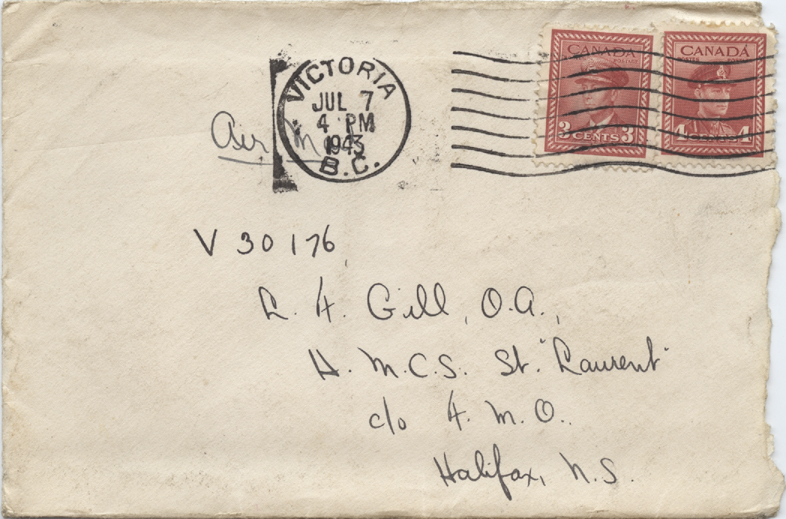 CANADA
3 CENTS 3
CANADA
4 CANADA 4
VICTORIA
JUL 7
4 PM
1943
B.C.
Air M
V 30176
L. H. Gill, O.A.,
H. M.C.S. St. "Laurent"
c/o F. M. O.
Halifax, N.S.